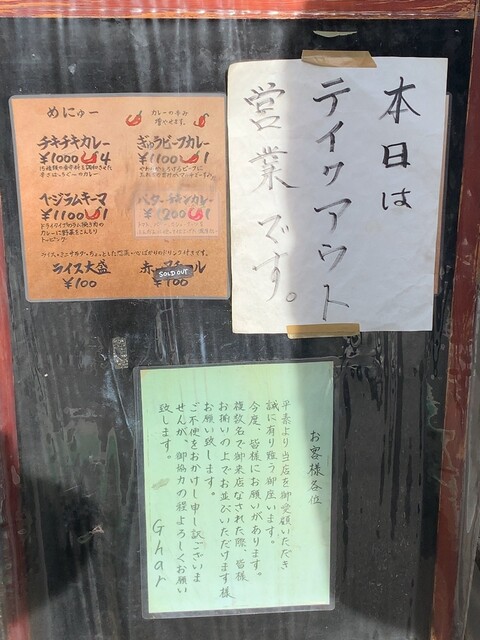 めにゅー
カレーの辛み
増やせます。
チキチキカレー
¥1000 4
ぎゅうビーフカレー
¥1100 1
ヤジラムキーマ
¥1100 1
ドライタイプのラム挽き肉の
カレーに野菜をこんもり
トッピング
バターチキンカレー
¥1200 1
ライス大盛
¥100
SOLD OUT
¥100
本日は
テイクアウト
営業です。
お客様各位
平素より当店を御愛顧いただき
誠に有り難う御座います。
今度、皆様にお願いがあります。
複数名で御来店なされた際、皆様
お揃いの上でお並びいただけます様
お願い致します。
ご不便をおかけし申し訳ございま
せんが、御協力の程よろしくお願い
致します。
Ghar